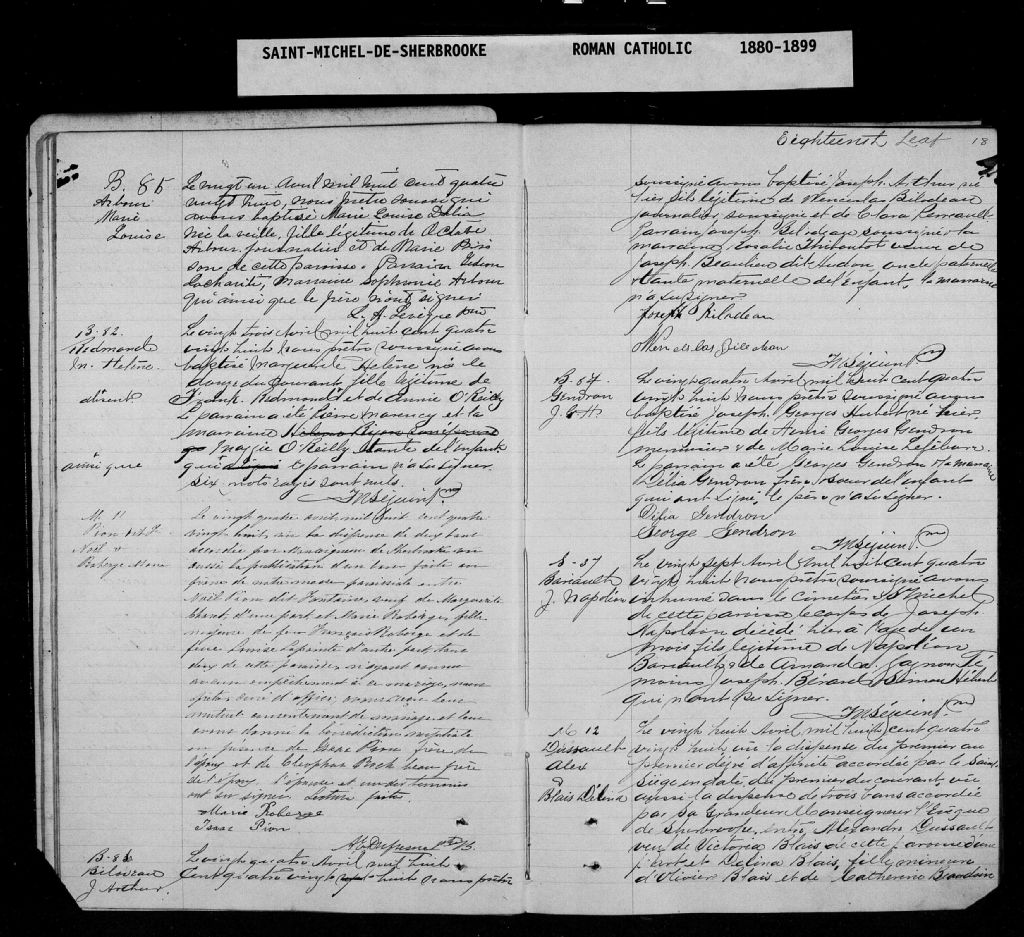 SAINT-MICHEL-DE-SHERBROOKE ROMAN CATHOLIC 1880-1899
B. 85
Arbour
Marie
Louise
Le vingt un Avril mil huit cent quatre
vingt huit, nous prêtre soussigné
avons baptisé Marie Louise Délia
née la veille, fille légitime de Octave
Arbour, journalier et de Marie Bris
son de cette paroisse. Parrain
Lacharité, Marraine Sophronie Arbour
qui ainsi que le père n'ont signer
L. A. Levêque ptre
B. 82.
Redmond
M. Helène.
Le vingt trois Avril mil huit cent quatre
vingt huit nous prêtre soussigné avons
baptisé Marguerite Helène née le
douze du courant, fille légitime de
Frank. Redmond et de Annie O'Reilly
Le parrain a été Pierre Marency et la
marraine
Maggie O'Reilly tante de l'enfant
ainsi que
qui le parrain n'a su signer.
six mots rayés sont nuls.
M. 11
Pion dit F
Noël &
Roberge Marie
Le vingt quatre avril mil huit cent quatre
vingt huit, vu la dispense de deux bans
accordée par Monseigneur de Sherbrooke vu
aussi la publication d'un ban faite au
prône de notre messe paroissiale entre
Noël Pion dit Fontaine, veuf de Marguerite
d'une part et Marie Roberge, fille
mineure de feu François Roberge et de
feue Louise Lapointe d'autre part tous
deux de cette paroisse, n'ayant connu
aucun empêchement à ce mariage, nous
prêtre curé d'office, avons reçu leur
mutuel consentement de mariage et leur
avons donné la bénédiction nuptiale
en présence de Isaac Pion frère de
l'époux et de Cléophas beau frère
de l'époux. l'épouse et
ont su signer. Lecture faite.
Marie Roberge
Isaac Pion
B. 86
Bilodeau
J Arthur
Le vingt quatre Avril mil huit
cent quatre vingt huit nous prêtre
Eighteenth Leaf 18
soussigné avons baptisé Joseph. Arthur né
hier fils légitime de Wenceslas Bilodeau
journalier, soussigné et de Clara Perreault
Parrain Joseph Bilodeau soussigné la
marraine, Rosalie Thiboutot veuve de
Joseph Beaulieu dit Hudon, oncle paternel
& tante maternelle de l'Enfant, la marraine
n'a su signer
Joseph Bilodeau
Wenceslas Bilodeau
B. 87.
Gendron
J. G. H
Le vingt quatre Avril mil huit cent quatre
vingt huit nous prêtre soussigné avons
baptisé Joseph. Georges Hubert né hier,
fils légitime de Henri Georges Gendron
menuisier & de Marie Louise Lefebvre.
Le parrain a été Georges Gendron & la marraine
Délia Gendron frère & sœur de l'enfant
qui ont signé. le père n'a su signer.
Délia Gendron
George Gendron
S. 37
Barieault
J. Napoléon
Le vingt sept Avril mil huit cent quatre
vingt huit nous prêtre soussigné avons
inhumé dans le cimetière St Michel
de cette paroisse le corps de Joseph
Napoléon décédé hier à l'age de un
mois fils légitime de Napoléon
Barieault & de Armanda Gagnon Té
moins Joseph Bérard & Simon Hébert
qui n'ont pu signer.
M 12
Dussault
Alex
&
Blais Délina
Le vingt huit Avril mil huit cent quatre
vingt huit vu la dispense du premier au
premier degré d'affinité accordée par le Saint
Siège en date du premier du courant, vu
aussi la dispense de trois bans accordée
par Sa Grandeur Monseigneur l'Evêque
de Sherbrooke, entre Alexandre Dussault
veuf de Victoria Blais de cette paroisse d'une
part et Délina Blais, fille mineure
d'Olivier Blais et de Catherine Beaudoin